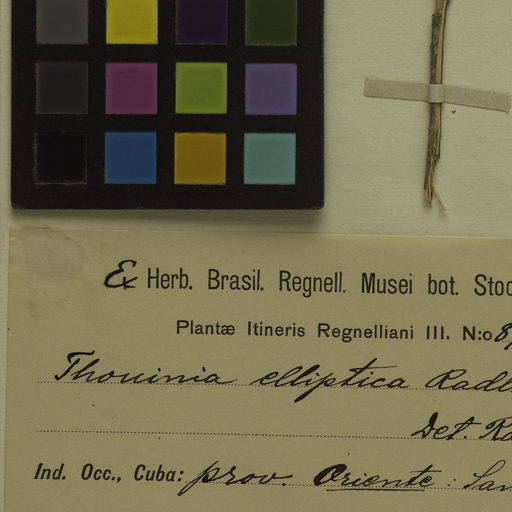 Ex Herb. Brasil. Regnell. Musei bot. Stoc
Plantæ Itineris Regnelliani III. N:o 8
Thouinia elliptica Radl
Det. Ra
Ind. Occ., Cuba: prov. Oriente : San